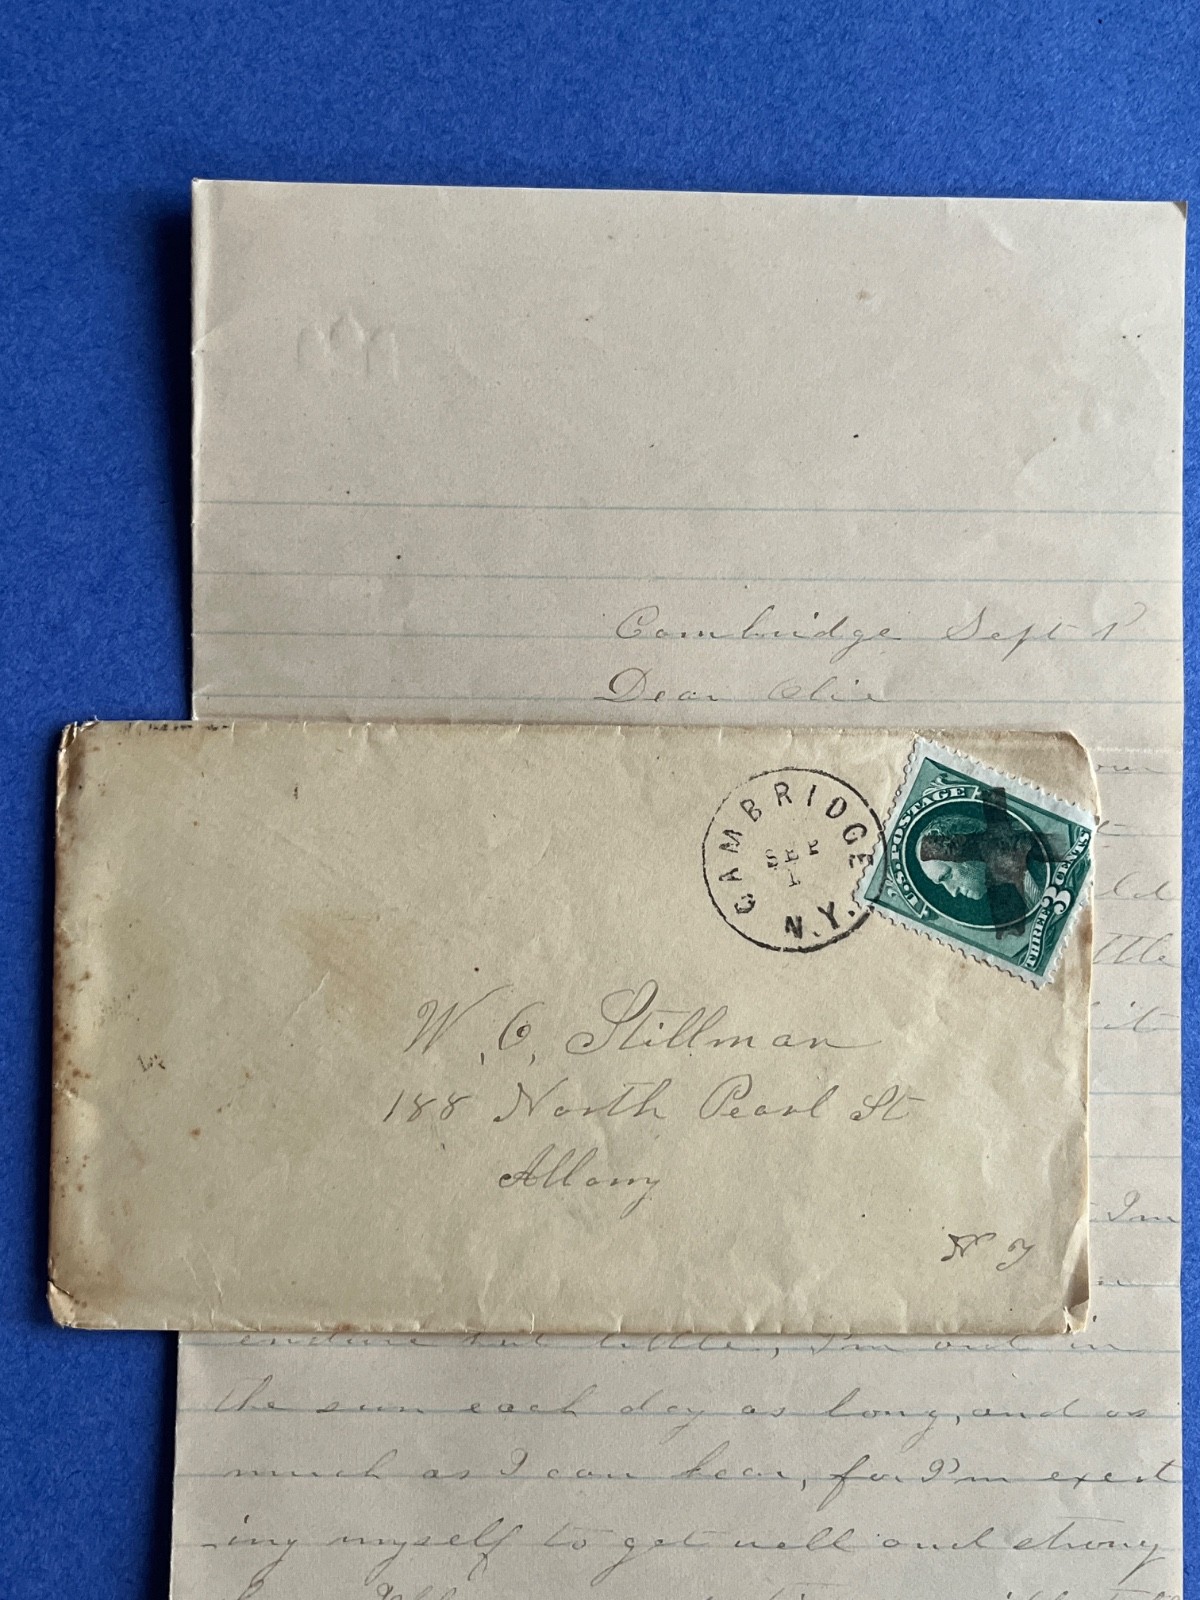 Cambridge Sept 1
Dear Olie
our
CAMBRIDGE
SEP
1
N.Y.
U.S. POSTAGE
3
CENTS
ld
ttle
it
W. O. Stillman
188 North Pearl St
Albany
N Y
I'm
endure but little, I'm out in
the sun each day as long, and as
much as I can bear, for I'm exert
-ing myself to get well and strong